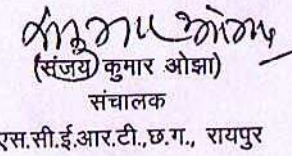 (संजय कुमार ओझा)
संचालक
एस.सी.ई.आर.टी.,छ.ग., रायपुर